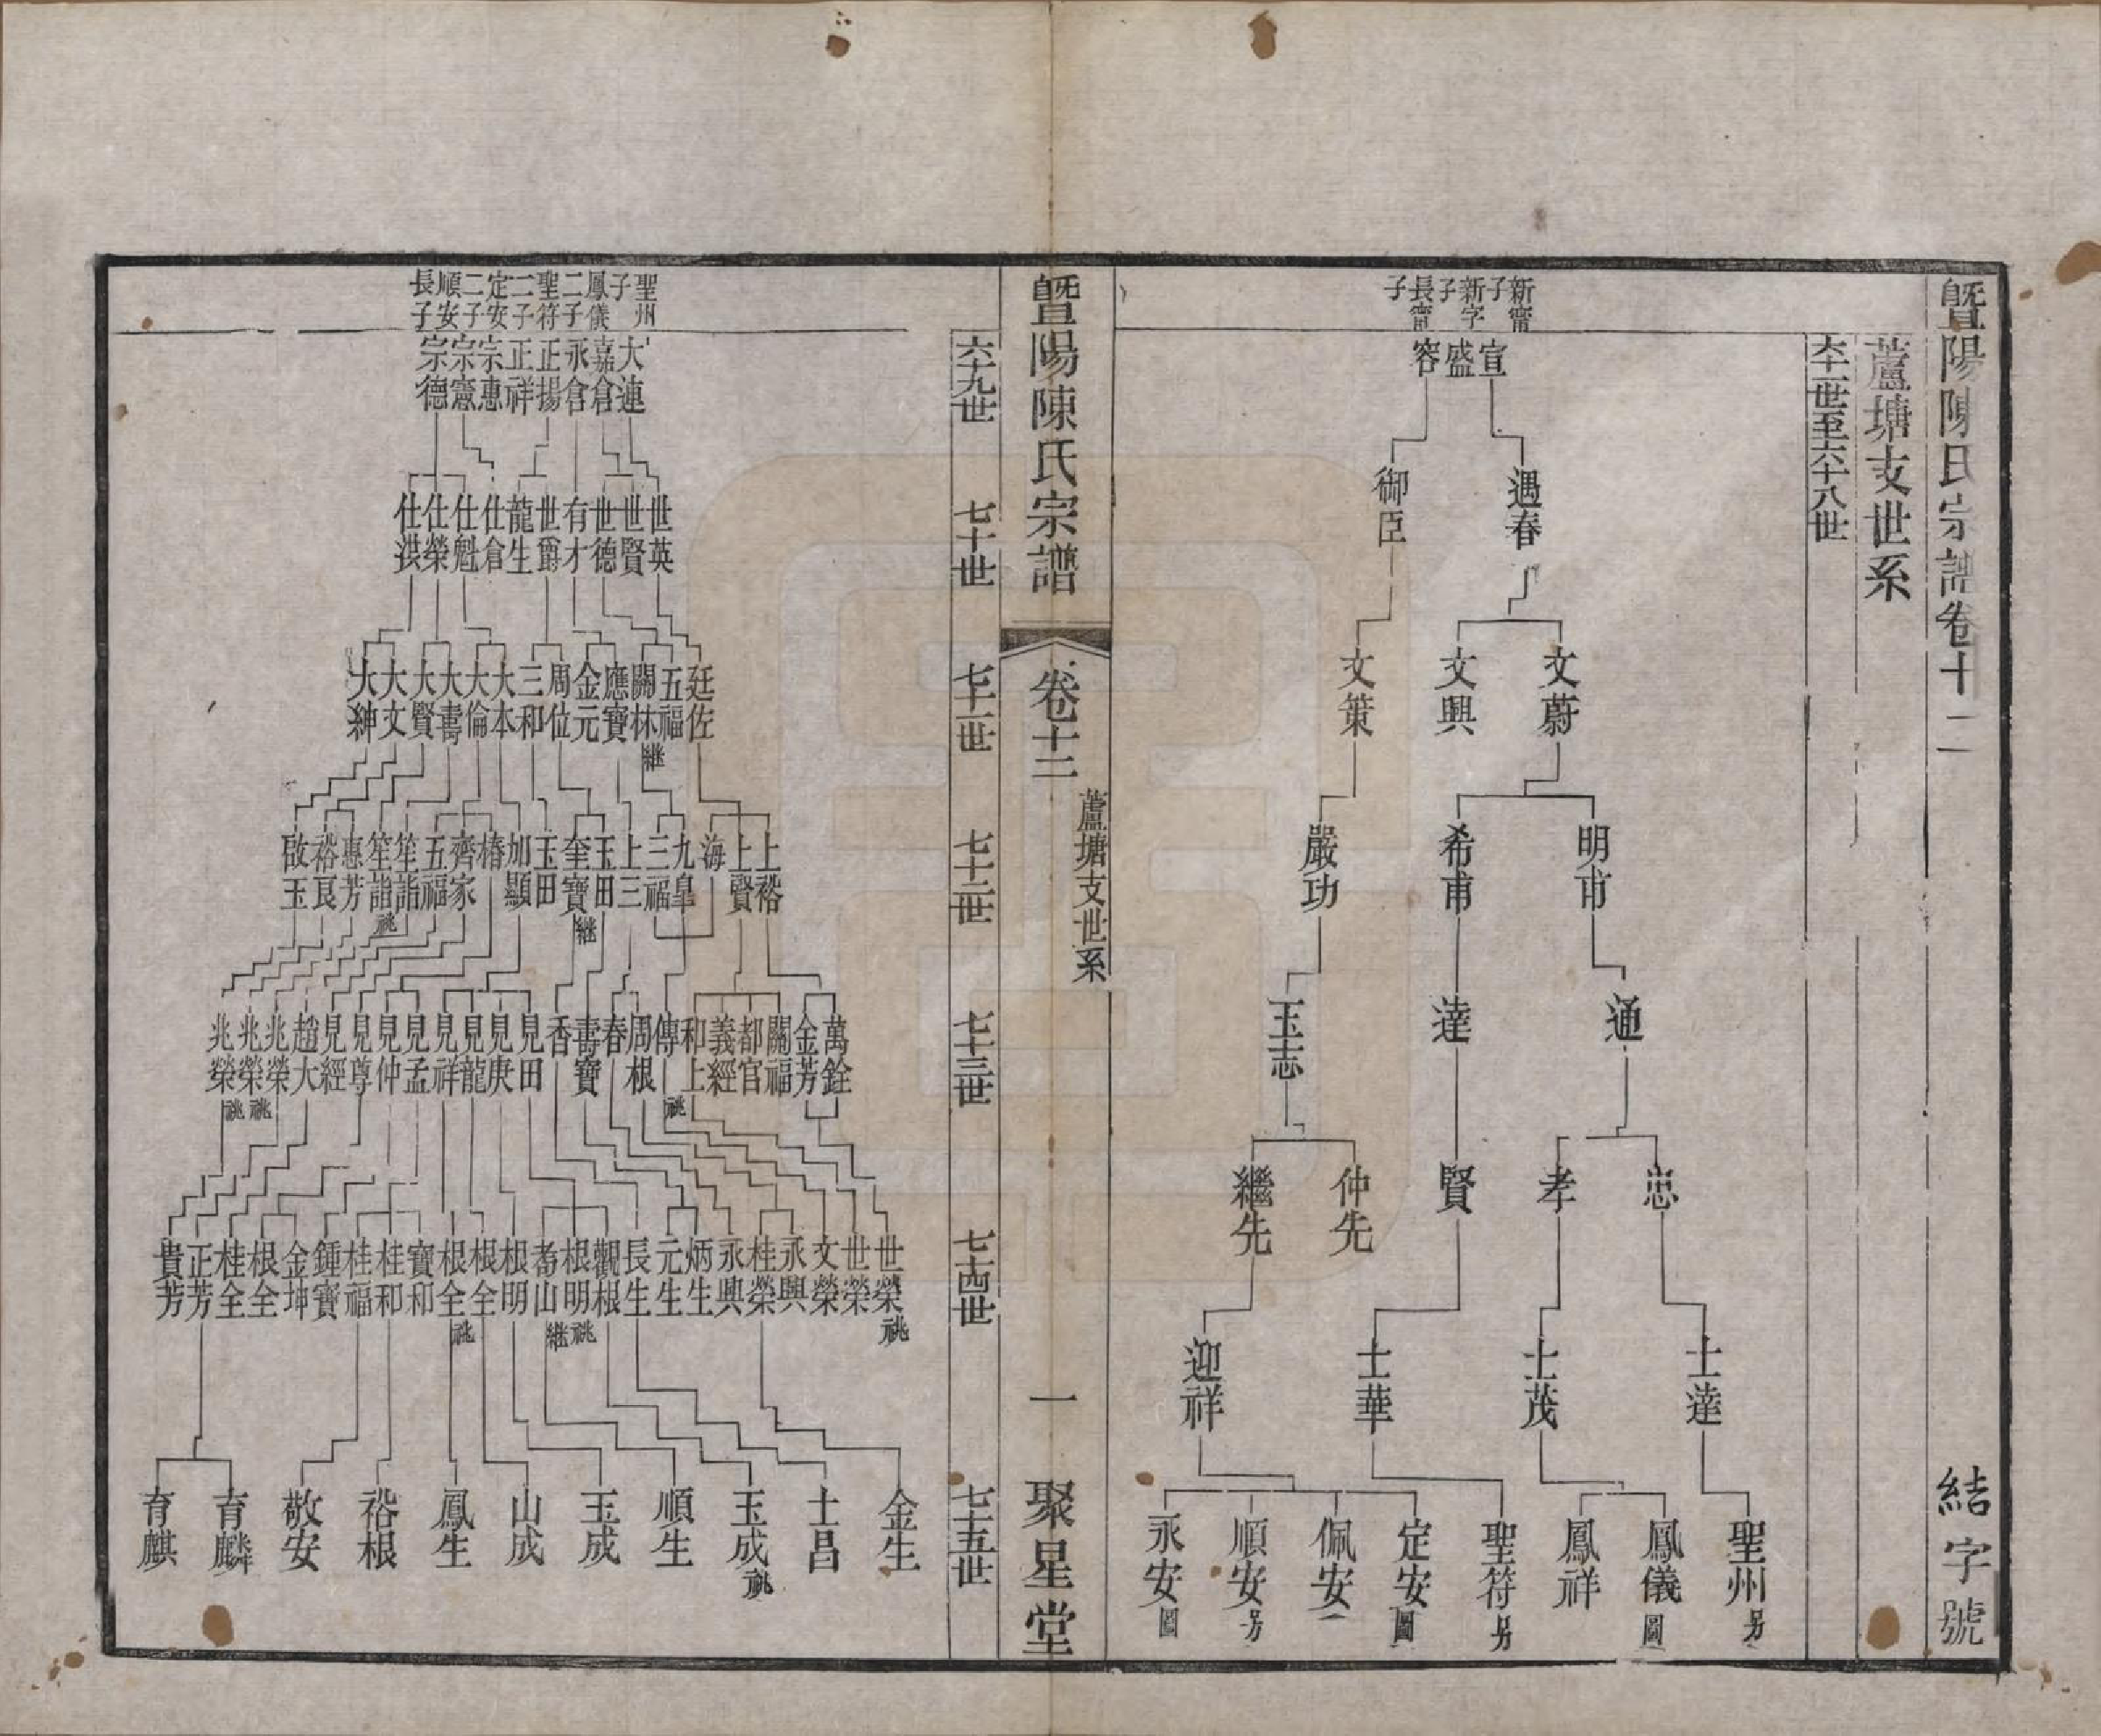 暨陽陳氏宗譜卷十二
結字號
蘆塘支世系
六十一世至六十八世
新甯子
新字子
長甯子
宣
盛
容
遇春
御臣
文蔚
文興
文策
明甫
希甫
嚴功
通
達
玉志
忠
孝
賢
仲先
繼先
士達
士茂
士華
迎祥
聖州 另
鳳儀 圖
鳳祥
聖符 另
定安 圖
佩安
順安 另
永安 圖
暨陽陳氏宗譜
卷十二
蘆塘支世系
一
聚星堂
六十九世
七十世
七十一世
七十二世
七十三世
七十四世
七十五世
聖州子
鳳儀二子
聖符二子
定安二子
順安長子
大連
嘉倉
永倉
正揚
正祥
宗惠
宗憲
宗德
世英
世賢
世德
有才
世爵
龍生
仕倉
仕魁
仕榮
仕洪
廷佐
五福
關林 継
應寶
金元
周位
三和
大本
大倫
大壽
大賢
大文
大紳
上裕
上賢
海
九皐
三福
上三
玉田
奎寶 継
玉田
加顯
椿
齊家
五福
笙詣
笙詣 祧
惠芳
裕良
啟玉
萬銓
金芳
關福
都官
義經
和上
傳 祧
周根
春
壽寶
香
見田
見庚
見龍
見祥
見孟
見仲
見尊
見經
趙大
兆榮
兆榮 祧
兆榮 祧
世榮 祧
世榮
文榮
永興
桂榮
永興
炳生
元生
長生
觀根
根明 祧
喬山 継
根明
根全
根全 祧
寶和
桂和
桂福
鍾寶
金坤
根全
桂全
正芳
貴芳
金生
士昌
玉成 祧
順生
玉成
山成
鳳生
裕根
敬安
育麟
育麒